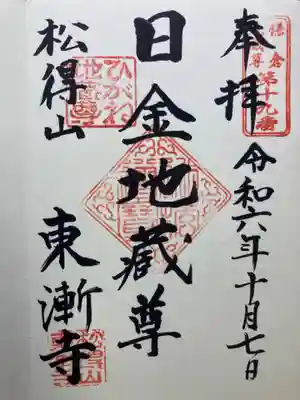 奉拝
令和六年十月七日
第十九番
日金地蔵尊
ひがね
地蔵尊
松得山
東漸寺